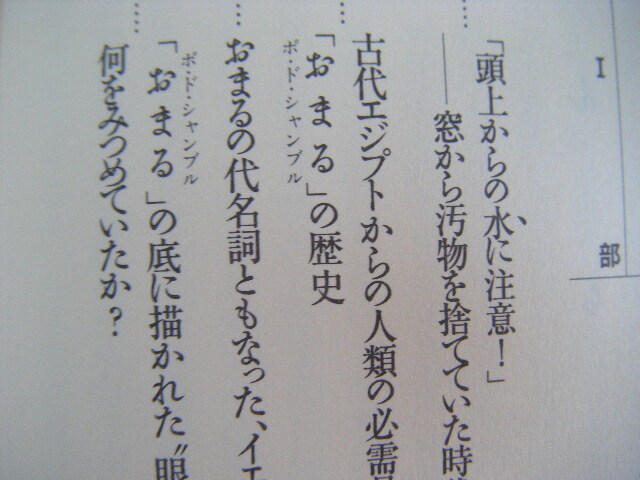 I 部
「頭上からの水に注意！」
――窓から汚物を捨てていた時
古代エジプトからの人類の必需
「おまる」の歴史
ポ・ド・シャンブル
おまるの代名詞ともなった、イエ
「おまる」の底に描かれた〝眼
ポ・ド・シャンブル
何をみつめていたか？